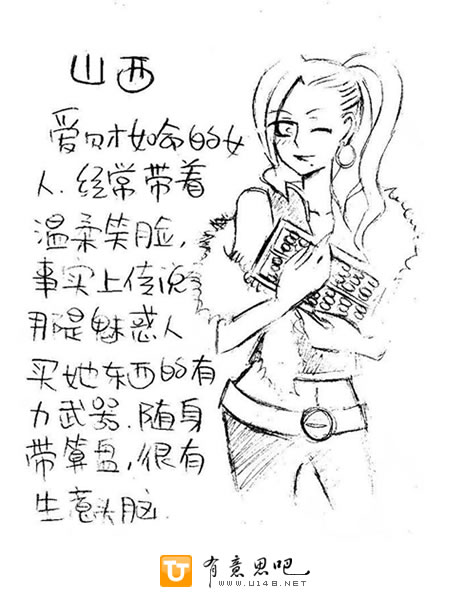 山西
爱财如命的女
人.经常带着
温柔笑脸,
事实上传说
那是魅惑人
买她东西的有
力武器.随身
带算盘,很有
生意头脑
有意思吧
www.u148.net